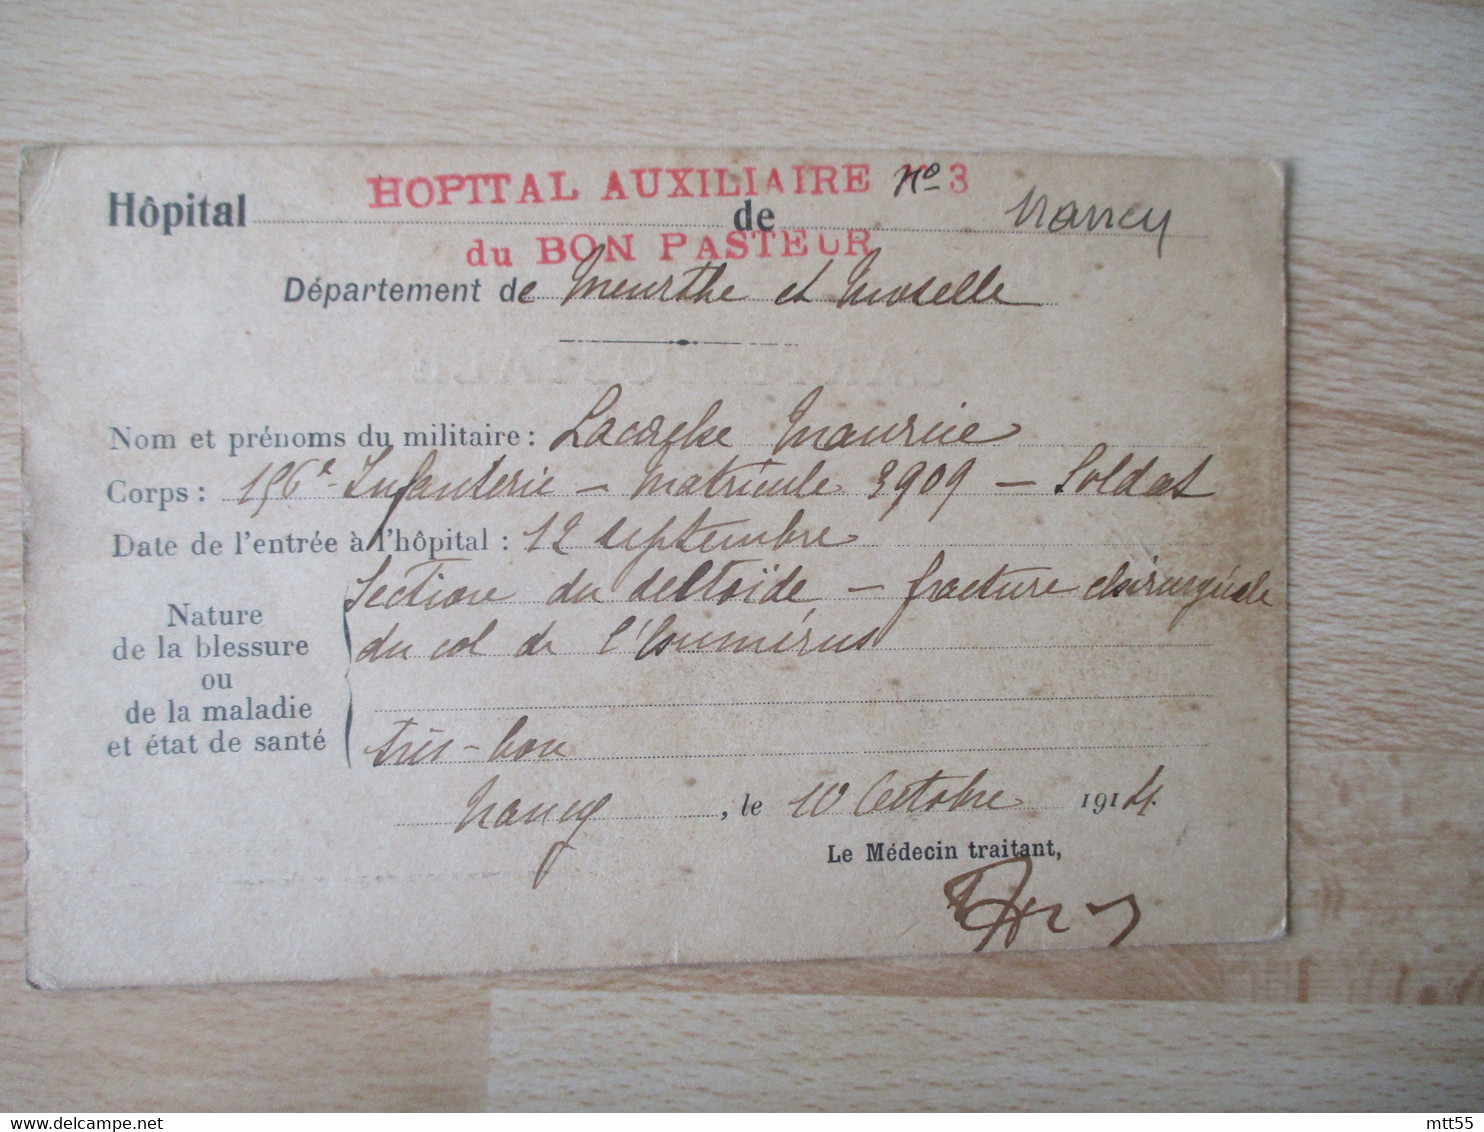 HOPITAL AUXILIAIRE No 3
Hôpital de Nancy
du BON PASTEUR
Département de Meurthe et Moselle
Nom et prénoms du militaire : Maurice
Corps : 156e Infanterie – Matricule 3909 – Soldat
Date de l'entrée à l'hôpital : 12 septembre
Nature
de la blessure
ou
de la maladie
et état de santé
Section du deltoïde, – fracture chirurgicale
du col de l'humérus
très-bon
Nancy, le 10 Octobre 1914.
Le Médecin traitant,
delcampe.net
mtt55